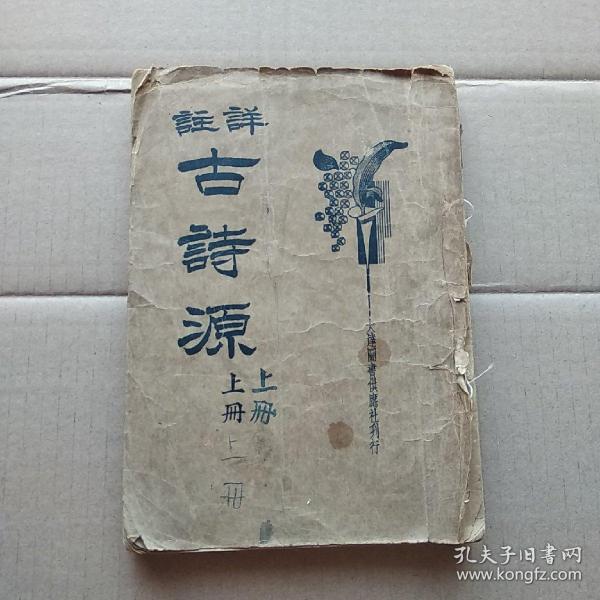 詳註
古詩源
上冊
上冊
上冊
大達圖書供應社刊行
孔夫子旧书网
www.kongfz.com